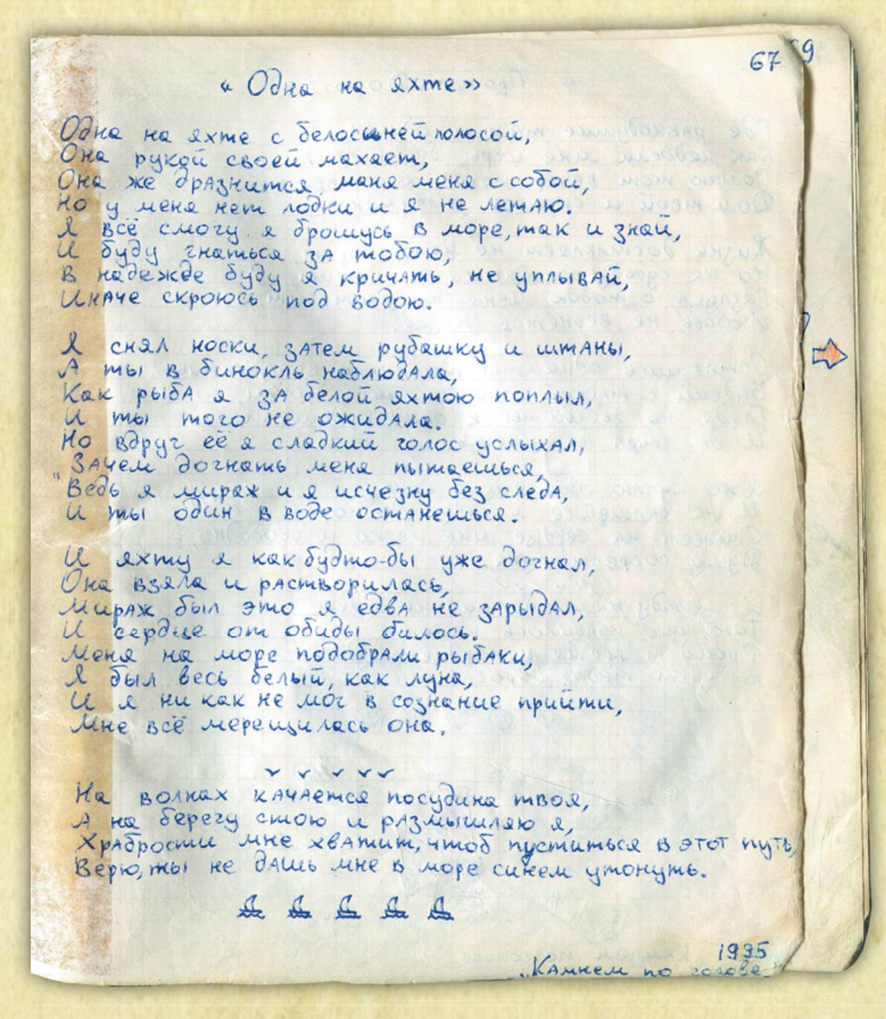 67
59
« Одна на яхте»
Одна на яхте с белосиней полосой,
Она рукой своей махает,
Она же дразнится маня меня с собой,
Но у меня нет лодки и я не летаю.
Я всё смогу я брошусь в море, так и знай,
И буду гнаться за тобою,
В надежде буду я кричать, не уплывай,
Иначе скроюсь под водою.
Я снял носки, затем рубашку и штаны,
А ты в бинокль наблюдала,
Как рыба я за белой яхтою поплыл,
И ты того не ожидала.
Но вдруг её я сладкий голос услыхал,
"Зачем догнать меня пытаешься,
Ведь я мираж и я исчезну без следа,
И ты один в воде останешься.
И яхту я как будто-бы уже догнал,
Она взяла и растворилась,
Мираж был это я едва не зарыдал,
И сердце от обиды билось.
Меня на море подобрали рыбаки,
Я был весь белый, как луна,
И я ни как не мог в сознание прийти,
Мне всё мерещилась она.
На волнах качается посудина твоя,
А на берегу стою и размышляю я,
Храбрости мне хватит, чтоб пуститься в этот путь,
Верю, ты не дашь мне в море синем утонуть.
1995
„Камнем по голове"